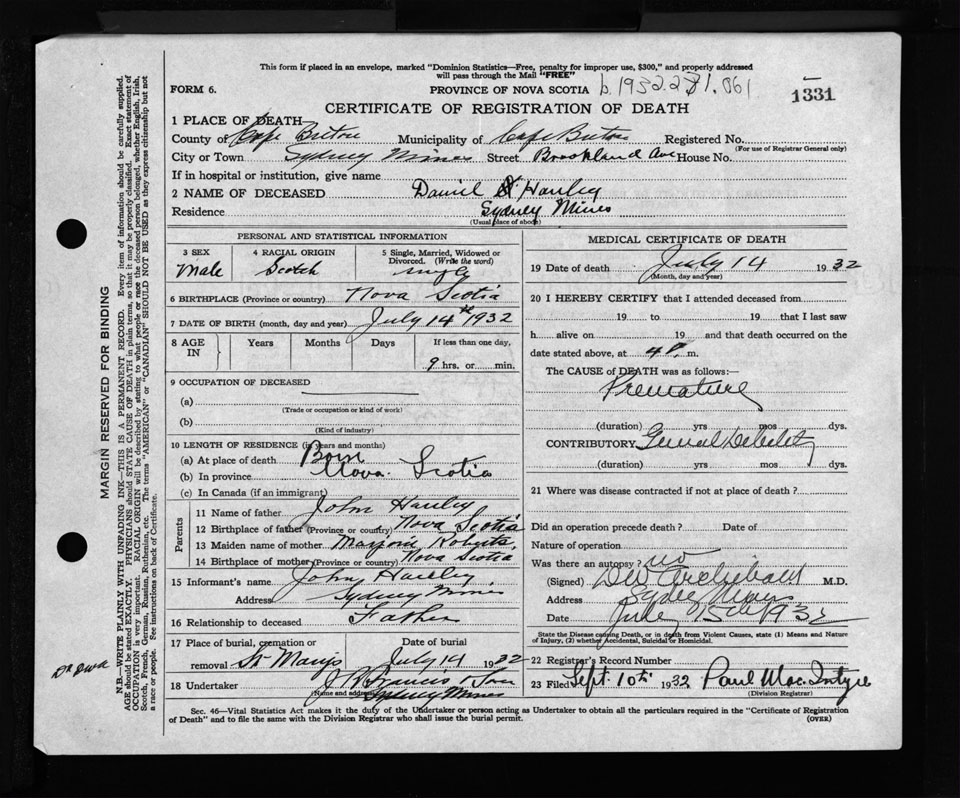 This form if placed in an envelope, marked "Dominion Statistics—Free, penalty for improper use, $300," and properly addressed
will pass through the Mail "FREE"
FORM 6.
PROVINCE OF NOVA SCOTIA
1331
CERTIFICATE OF REGISTRATION OF DEATH
1 PLACE OF DEATH—
County of Cape Breton Municipality of Cape Breton Registered No.
(For use of Registrar General only)
City or Town Sydney Mines Street Brookland Ave House No.
If in hospital or institution, give name
2 NAME OF DECEASED Daniel Hanley
Residence Sydney Mines
(Usual place of abode)
PERSONAL AND STATISTICAL INFORMATION
3 SEX
Male
4 RACIAL ORIGIN
Scotch
5 Single, Married, Widowed or
Divorced. (Write the word)
single
6 BIRTHPLACE (Province or country) Nova Scotia
7 DATE OF BIRTH (month, day and year) July 14th 1932
8 AGE
IN
Years
Months
Days
If less than one day,
9 hrs. or min.
9 OCCUPATION OF DECEASED
(a)
(Trade or occupation or kind of work)
(b)
(Kind of industry)
10 LENGTH OF RESIDENCE (in years and months)
(a) At place of death Born
(b) In province Nova Scotia
(c) In Canada (if an immigrant)
Parents
11 Name of father John Hanley
12 Birthplace of father (Province or country) Nova Scotia
13 Maiden name of mother Marjorie Roberts
14 Birthplace of mother (Province or country) Nova Scotia
15 Informant's name John Hanley
Address Sydney Mines
16 Relationship to deceased Father
17 Place of burial, cremation or
removal St Marys
Date of burial
July 14 1932
18 Undertaker J Francis
(Name and address) Sydney Mines
MEDICAL CERTIFICATE OF DEATH
19 Date of death July 14 1932
(Month, day and year)
20 I HEREBY CERTIFY that I attended deceased from
19 to 19 that I last saw
h alive on 19 and that death occurred on the
date stated above, at 4 P. m.
The CAUSE of DEATH was as follows:—
Premature
(duration) yrs mos dys.
CONTRIBUTORY General Debility
(duration) yrs mos dys.
21 Where was disease contracted if not at place of death?
Did an operation precede death? Date of
Nature of operation
Was there an autopsy? no
(Signed) DW Archibald M.D.
Address Sydney Mines
Date July 15th 1932
State the Disease causing Death, or in death from Violent Causes, state (1) Means and Nature
of Injury, (2) whether Accidental, Suicidal or Homicidal.
22 Registrar's Record Number
23 Filed Sept. 10th 1932 Paul MacIntyre
(Division Registrar)
Sec. 46—Vital Statistics Act makes it the duty of the Undertaker or person acting as Undertaker to obtain all the particulars required in the "Certificate of Registration
of Death" and to file the same with the Division Registrar who shall issue the burial permit.
(OVER)
MARGIN RESERVED FOR BINDING
N.B.—WRITE PLAINLY WITH UNFADING INK—THIS IS A PERMANENT RECORD. Every item of information should be carefully supplied.
AGE should be stated EXACTLY. PHYSICIANS should STATE CAUSE OF DEATH in plain terms, so that it may be properly classified. Exact statement of
OCCUPATION is very important. RACIAL ORIGIN will be described by stating to what people or race the deceased person belonged, whether English, Irish,
Scotch, French, German, Russian, Ruthenian, etc. The terms "AMERICAN" or "CANADIAN" SHOULD NOT BE USED as they express citizenship but not
a race or people. See instructions on back of Certificate.